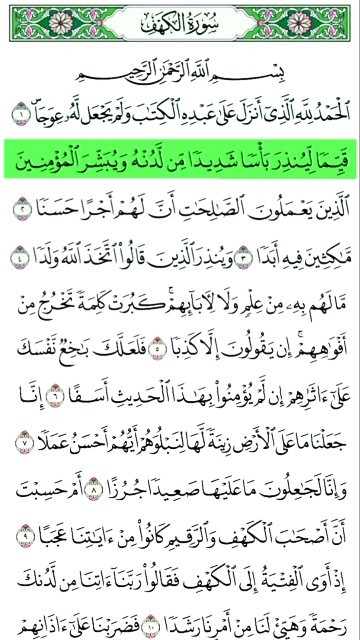 سُورَةُ الكَهۡفِ
بِسۡمِ ٱللَّهِ ٱلرَّحۡمَٰنِ ٱلرَّحِيمِ
ٱلۡحَمۡدُ لِلَّهِ ٱلَّذِيٓ أَنزَلَ عَلَىٰ عَبۡدِهِ ٱلۡكِتَٰبَ وَلَمۡ يَجۡعَل لَّهُۥ عِوَجَاۜ ١
قَيِّمٗا لِّيُنذِرَ بَأۡسٗا شَدِيدٗا مِّن لَّدُنۡهُ وَيُبَشِّرَ ٱلۡمُؤۡمِنِينَ
ٱلَّذِينَ يَعۡمَلُونَ ٱلصَّٰلِحَٰتِ أَنَّ لَهُمۡ أَجۡرًا حَسَنٗا ٢
مَّٰكِثِينَ فِيهِ أَبَدٗا ٣ وَيُنذِرَ ٱلَّذِينَ قَالُواْ ٱتَّخَذَ ٱللَّهُ وَلَدٗا ٤
مَّا لَهُم بِهِۦ مِنۡ عِلۡمٖ وَلَا لِأٓبَآئِهِمۡۚ كَبُرَتۡ كَلِمَةٗ تَخۡرُجُ مِنۡ
أَفۡوَٰهِهِمۡۚ إِن يَقُولُونَ إِلَّا كَذِبٗا ٥ فَلَعَلَّكَ بَٰخِعٞ نَّفۡسَكَ
عَلَىٰٓ ءَاثَٰرِهِمۡ إِن لَّمۡ يُؤۡمِنُواْ بِهَٰذَا ٱلۡحَدِيثِ أَسَفًا ٦ إِنَّا
جَعَلۡنَا مَا عَلَى ٱلۡأَرۡضِ زِينَةٗ لَّهَا لِنَبۡلُوَهُمۡ أَيُّهُمۡ أَحۡسَنُ عَمَلٗا ٧
وَإِنَّا لَجَٰعِلُونَ مَا عَلَيۡهَا صَعِيدٗا جُرُزًا ٨ أَمۡ حَسِبۡتَ
أَنَّ أَصۡحَٰبَ ٱلۡكَهۡفِ وَٱلرَّقِيمِ كَانُواْ مِنۡ ءَايَٰتِنَا عَجَبًا ٩
إِذۡ أَوَى ٱلۡفِتۡيَةُ إِلَى ٱلۡكَهۡفِ فَقَالُواْ رَبَّنَآ ءَاتِنَا مِن لَّدُنكَ
رَحۡمَةٗ وَهَيِّئۡ لَنَا مِنۡ أَمۡرِنَا رَشَدٗا ١٠ فَضَرَبۡنَا عَلَىٰٓ ءَاذَانِهِمۡ